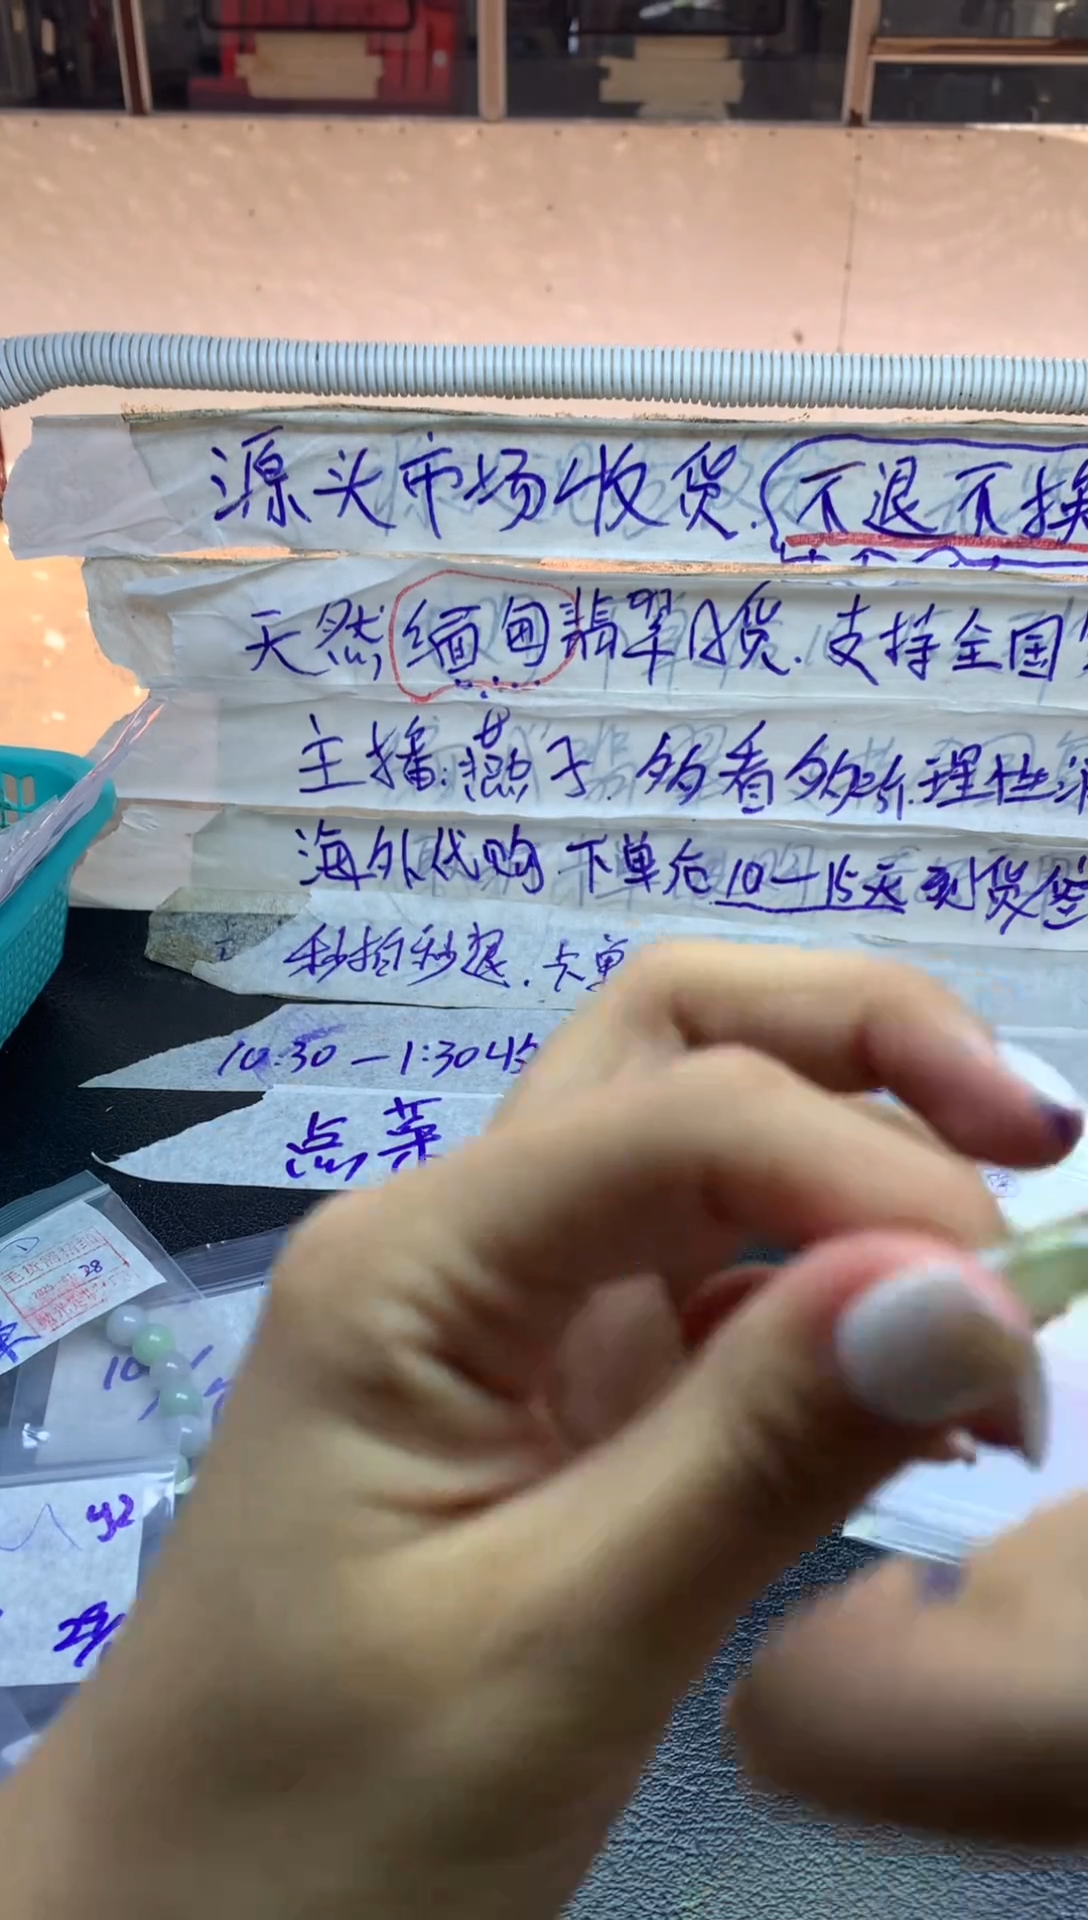 源头市场收货.(不退不换
天然缅甸翡翠A货.支持全国
主播:燕子.多看多哦.理性
海外代购 下单后10—15天到货
秒拍秒退.卡单
10:30—1:30
点菜
28
10
42